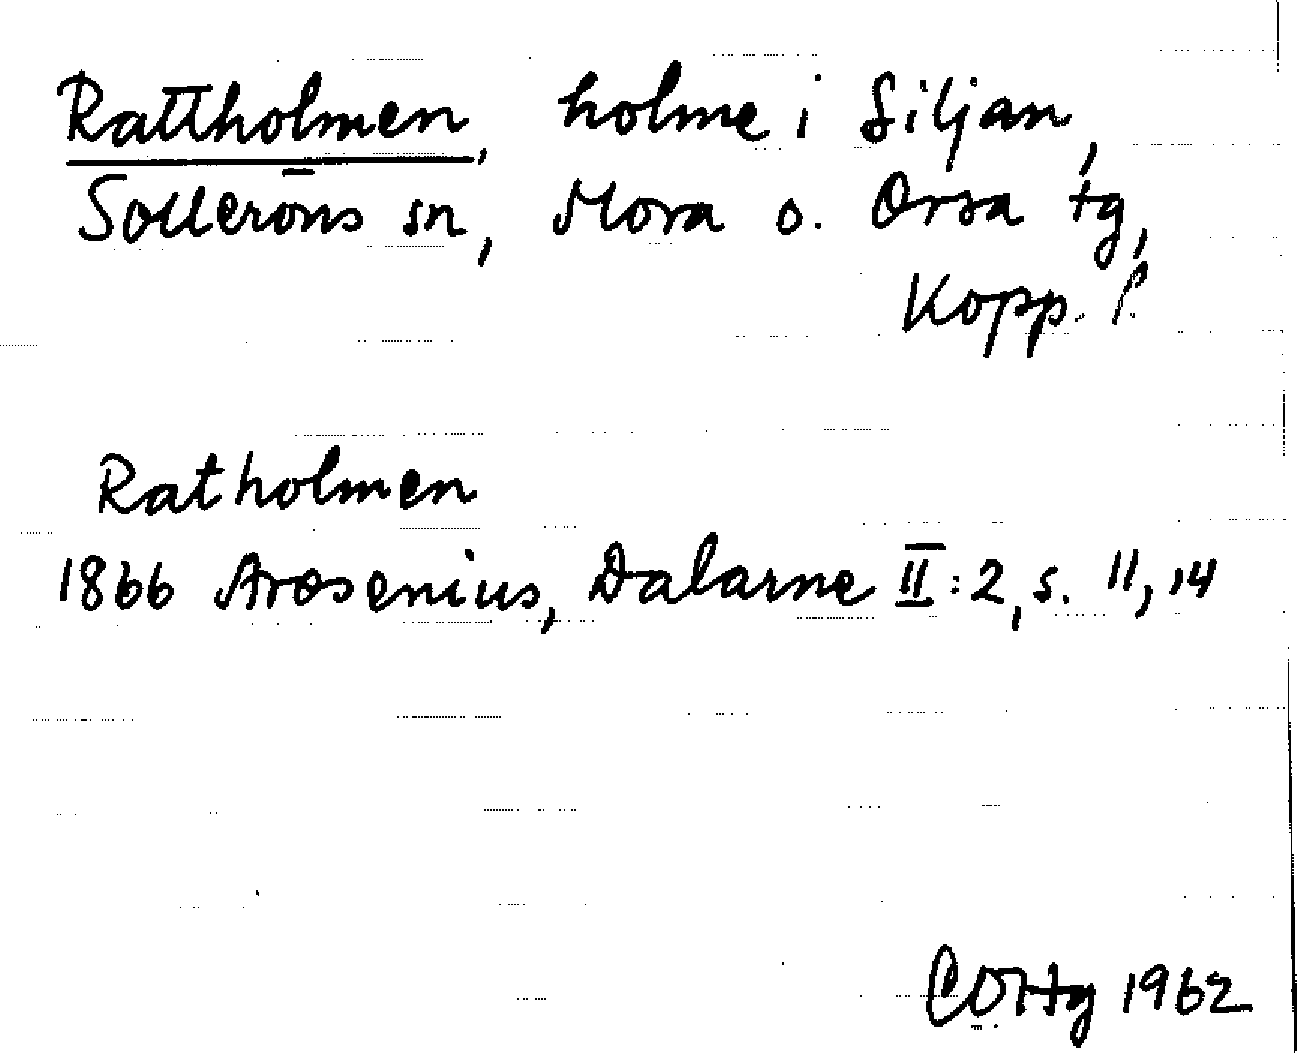 Rattholmen, holme i Siljan,
Solleröns sn, Mora o. Orsa tg,
Kopp. l.
Ratholmen
1866 Arosenius, Dalarne II:2, s. 11, 14
1962